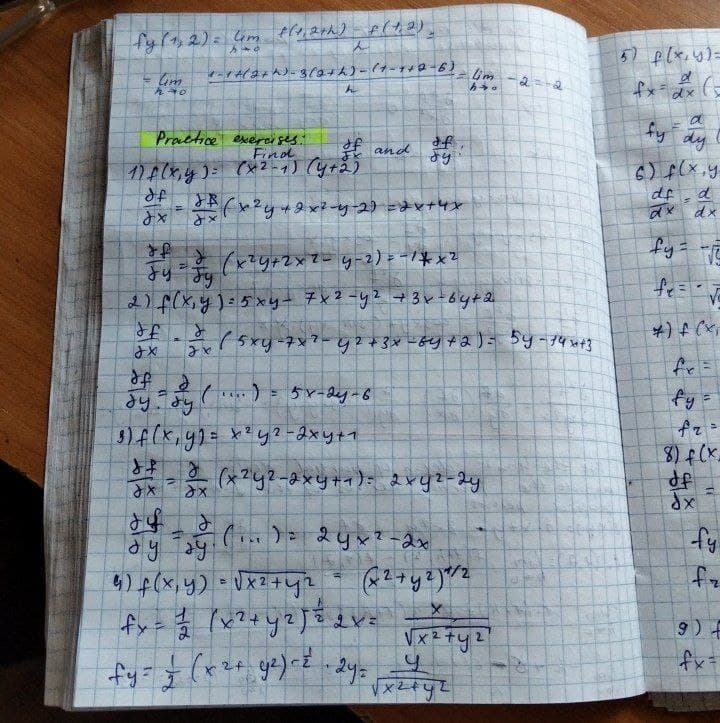 fy(1,2) = lim h→0 f(1,2+h) - f(1,2) / h =
= lim h→0 1-1+(2+h)-3(2+h)-(1-1+2-6) / h = lim h→0 -2 = -2
Practice exercises:
Find ∂f/∂x and ∂f/∂y:
1) f(x,y) = (x²-1)(y+2)
∂f/∂x = ∂/∂x (x²y+2x²-y-2) = 2x+4x
∂f/∂y = ∂/∂y (x²y+2x²-y-2) = -1+x²
2) f(x,y) = 5xy - 7x² - y² + 3x - 6y + 2
∂f/∂x = ∂/∂x (5xy-7x²-y²+3x-6y+2) = 5y-14x+3
∂f/∂y = ∂/∂y (....) = 5x-2y-6
3) f(x,y) = x²y²-2xy+1
∂f/∂x = ∂/∂x (x²y²-2xy+1) = 2xy²-2y
∂f/∂y = ∂/∂y (...) = 2yx²-2x
4) f(x,y) = √x²+y² = (x²+y²)^1/2
fx = 1/2 (x²+y²)^-1/2 2x = x/√x²+y²
fy = 1/2 (x²+y²)^-1/2 · 2y = y/√x²+y²
5) f(x,y) =
fx = d/dx (
fy = d/dy (
6) f(x,y
df/dx = d/dx
fy = -
fz = -
7) f(x,
fx =
fy =
fz =
8) f(x,
∂f/∂x =
fy
fz
9) f
fx =